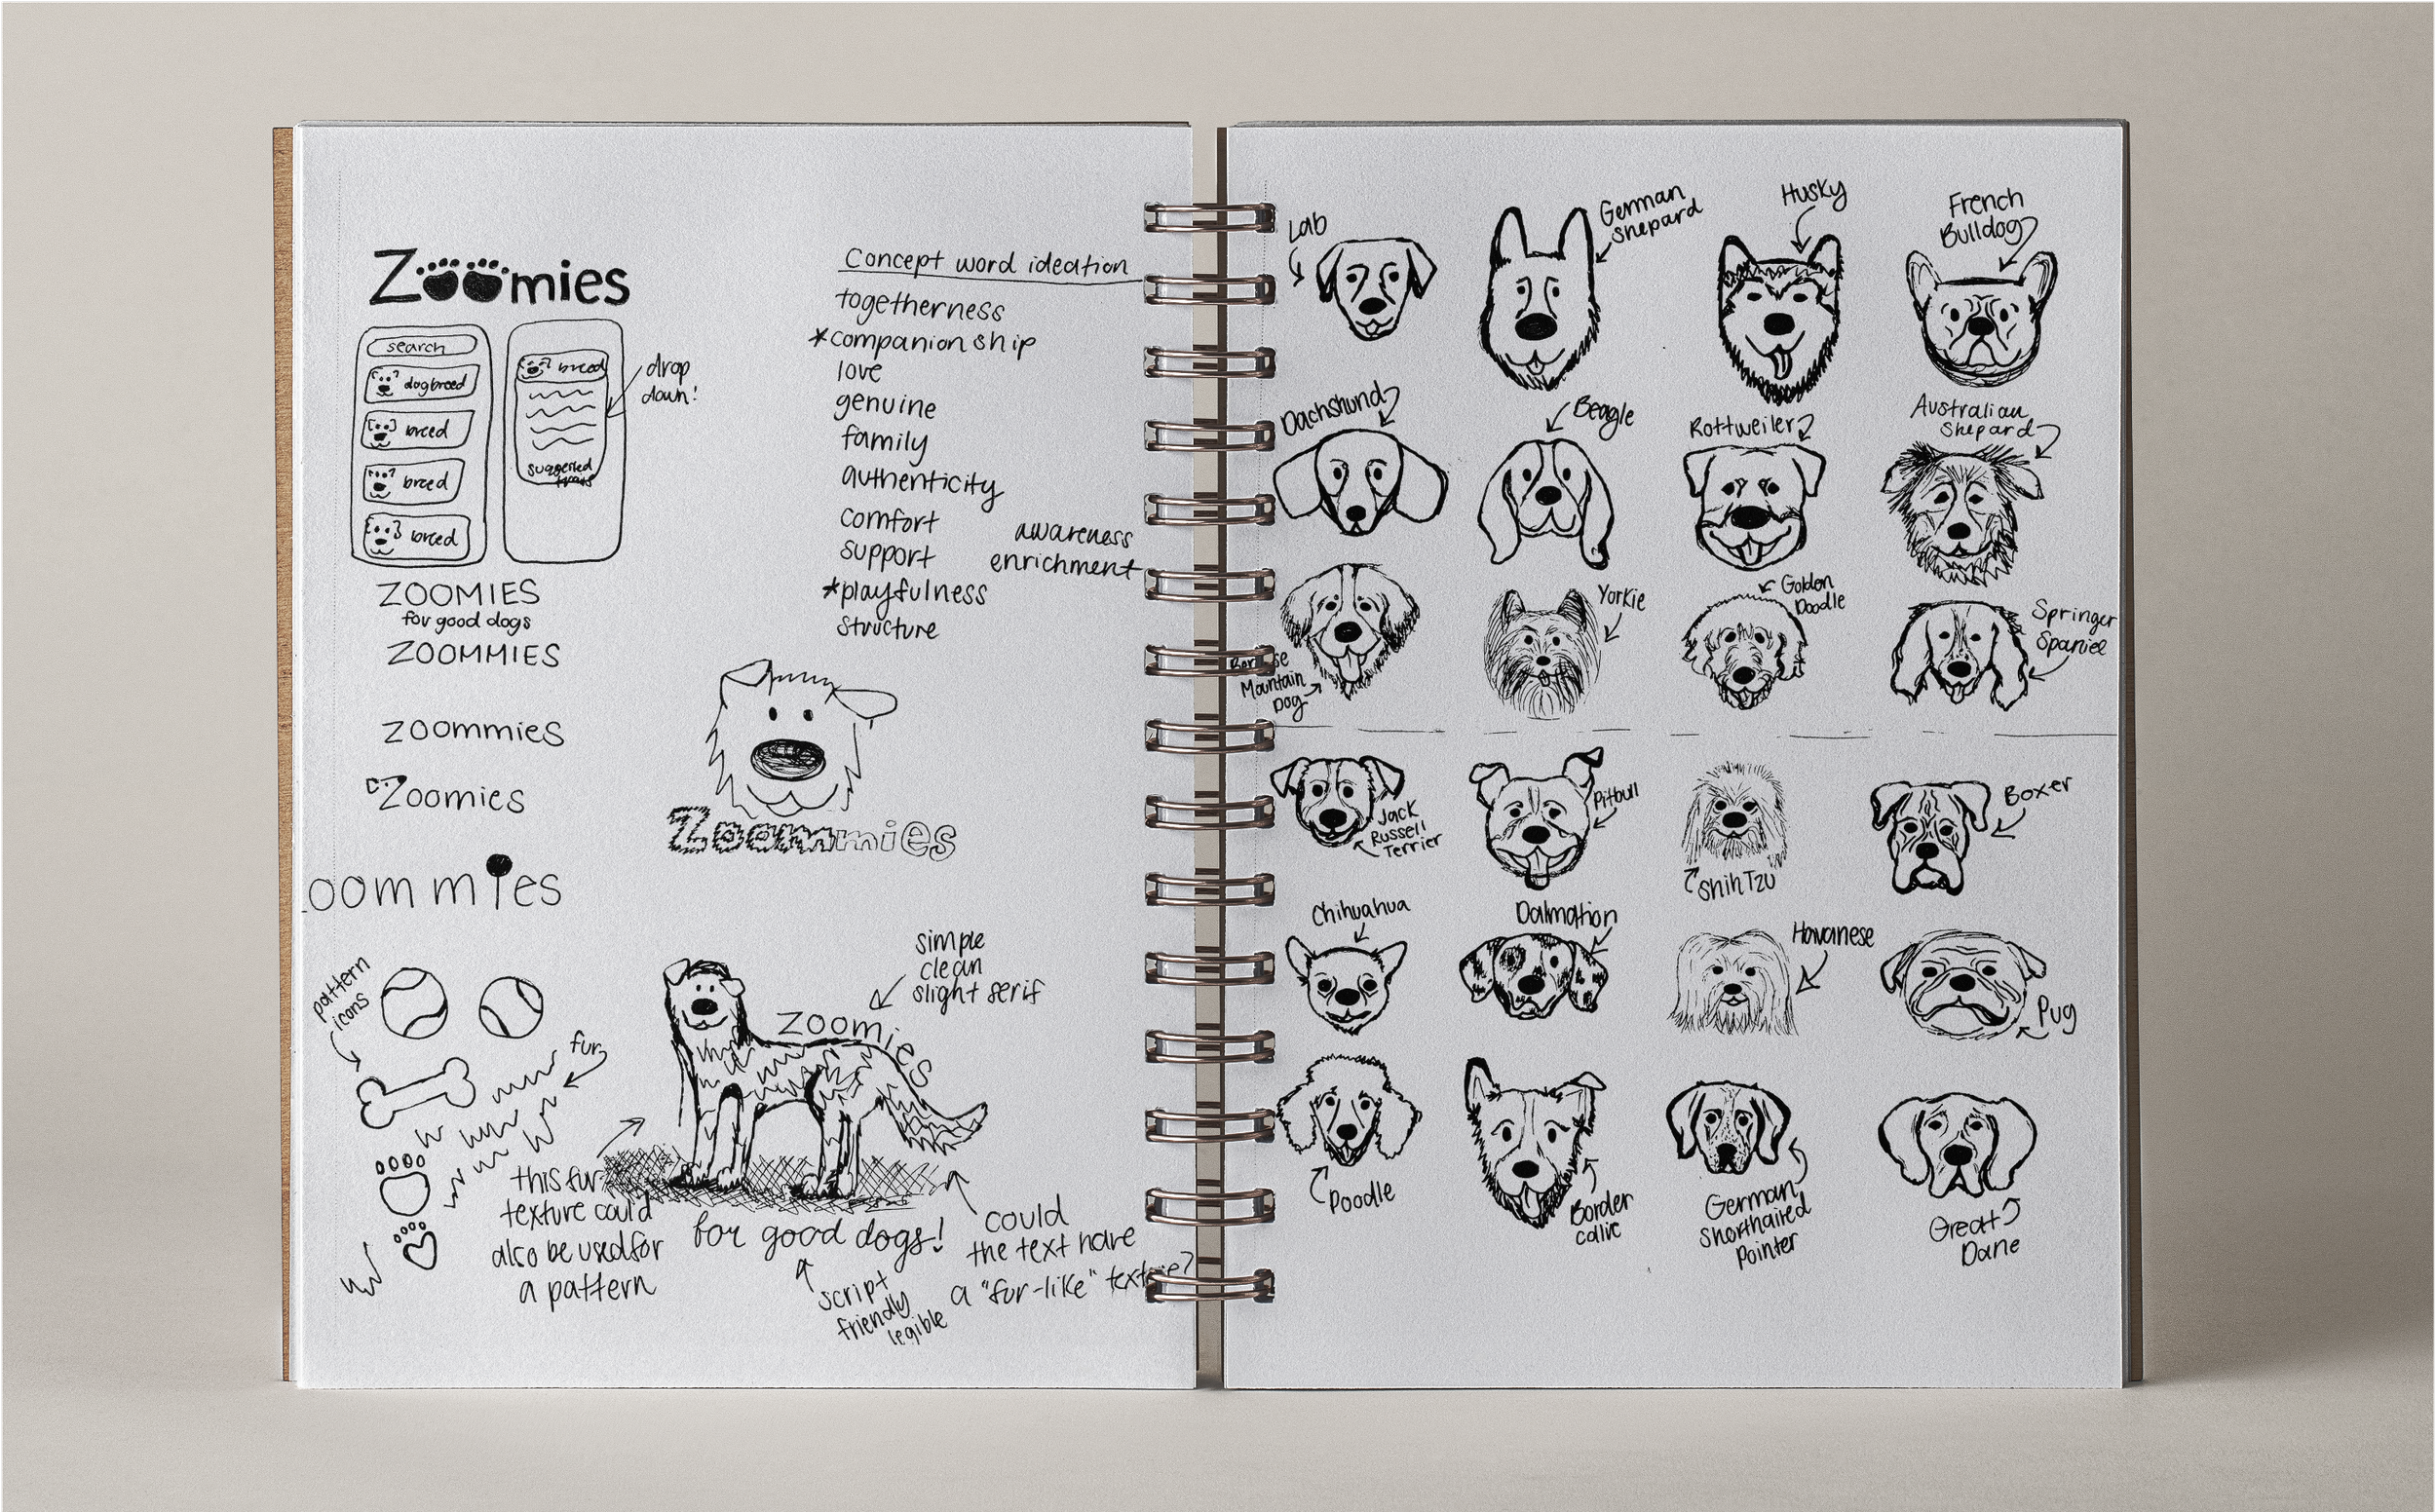 Zoomies
search
dog breed
breed
breed
breed
breed
suggested
drop
down!
ZOOMIES
for good dogs
ZOOMMIES
zoommies
Zoomies
oommies
Concept word ideation
togetherness
*companionship
love
genuine
family
authenticity
comfort
support
*playfulness
structure
awareness
enrichment
Zoommies
pattern
icons
fur
simple
clean
slight serif
zoomies
this fur
texture could
also be used for
a pattern
for good dogs!
script
friendly
legible
could
the text have
a "fur-like" texture?
Lab
German
Shepard
Husky
French
Bulldog
Dachshund
Beagle
Rottweiler
Australian
Shepard
Mountain
Dog
Yorkie
Golden
Doodle
Springer
Spaniel
Jack
Russell
Terrier
Pitbull
Shih Tzu
Boxer
Chihuahua
Dalmation
Havanese
Pug
Poodle
Border
collie
German
Shorthaired
Pointer
Great
Dane